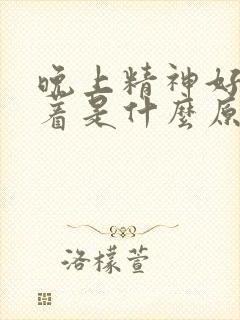 晚上精神好
着是什麼原
洛檬萱